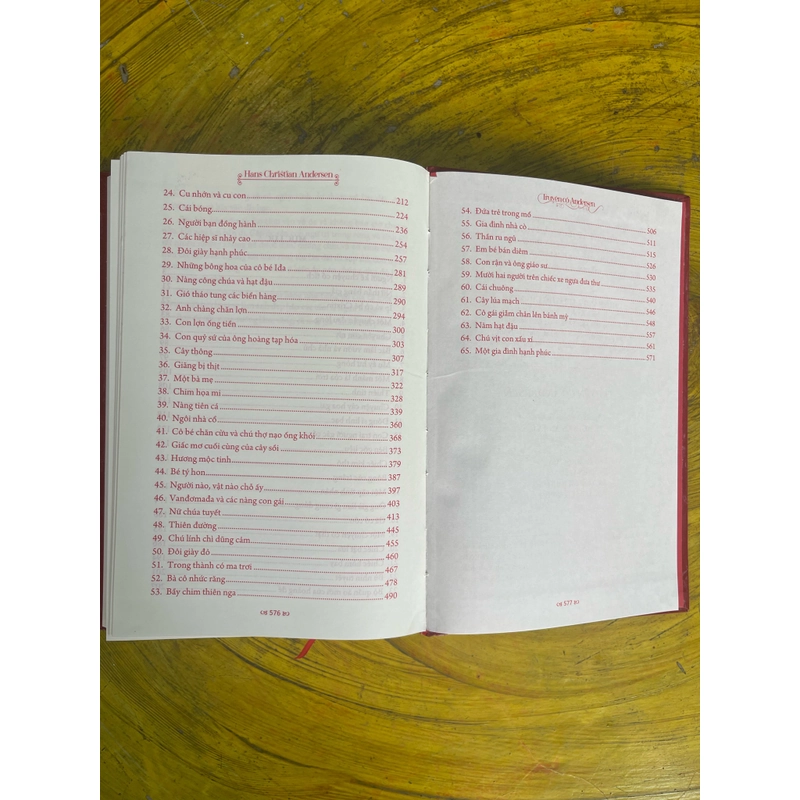 Hans Christian Andersen
24. Cu nhớn và cu con 212
25. Cái bóng 224
26. Người bạn đồng hành 236
27. Các hiệp sĩ nhảy cao 254
28. Đôi giày hạnh phúc 257
29. Những bông hoa của cô bé Iđa 281
30. Nàng công chúa và hạt đậu 289
31. Gió tháo tung các biển hàng 290
32. Anh chàng chăn lợn 294
33. Con lợn ống tiền 300
34. Con quỷ sứ của ông hoàng tạp hóa 303
35. Cây thông 307
36. Giăng bị thịt 317
37. Một bà mẹ 322
38. Chim họa mi 328
39. Nàng tiên cá 339
40. Ngôi nhà cổ 360
41. Cô bé chăn cừu và chú thợ nạo ống khói 368
42. Giấc mơ cuối cùng của cây sồi 373
43. Hương mộc tinh 379
44. Bé tý hon 387
45. Người nào, vật nào chỗ ấy 397
46. Vanđơmađa và các nàng con gái 403
47. Nữ chúa tuyết 413
48. Thiên đường 445
49. Chú lính chì dũng cảm 455
50. Đôi giày đỏ 460
51. Trong thành có ma trơi 467
52. Bà cô nhức răng 478
53. Bầy chim thiên nga 490
576
Truyện cổ Andersen
54. Đứa trẻ trong mồ 506
55. Gia đình nhà cò 511
56. Thần ru ngủ 515
57. Em bé bán diêm 526
58. Con rận và ông giáo sư 530
59. Mười hai người trên chiếc xe ngựa đưa thư 535
60. Cái chuông 540
61. Cây lúa mạch 546
62. Cô gái giẫm chân lên bánh mỳ 548
63. Năm hạt đậu 557
64. Chú vịt con xấu xí 561
65. Một gia đình hạnh phúc 571
577